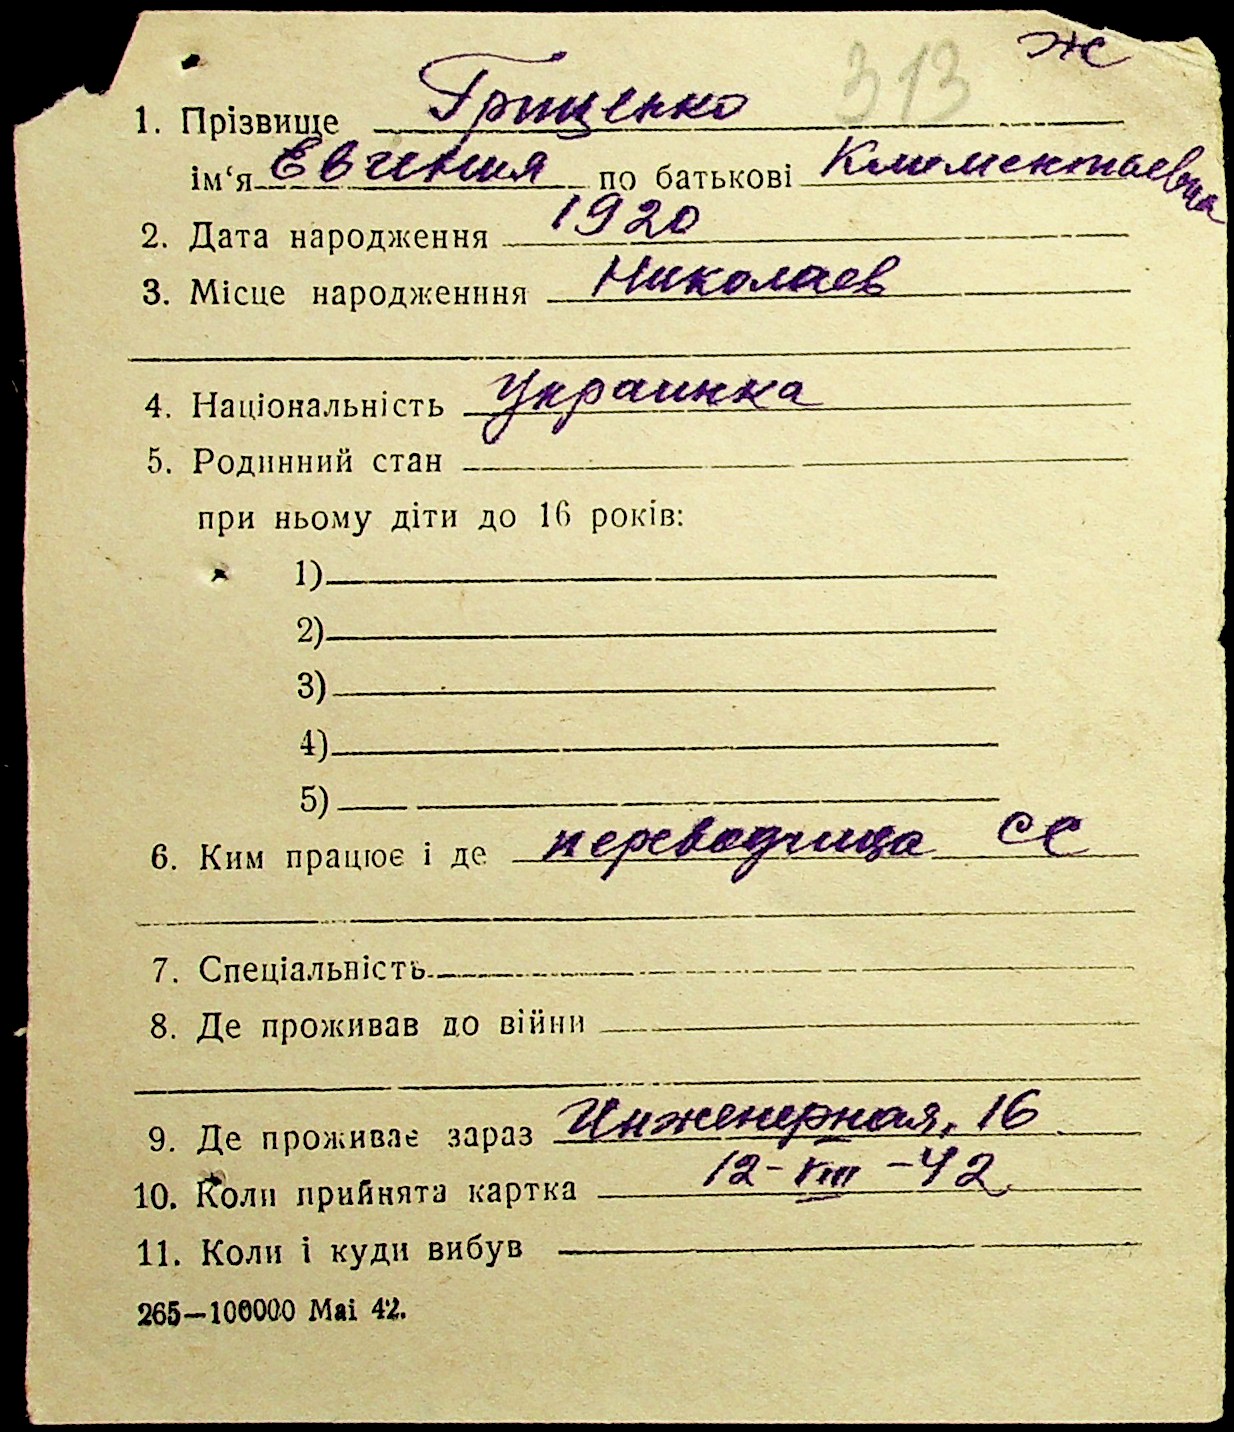 313 Ж
1. Прізвище Грищенко
ім‘я Евгения по батькові Климентаевна
2. Дата народження 1920
3. Місце народженння Николаев
4. Національність Украинка
5. Родинний стан
при ньому діти до 16 років:
1)
2)
3)
4)
5)
6. Ким працює і де переводчица СС
7. Спеціальність
8. Де проживав до війни
9. Де проживає зараз Инженерная, 16
10. Коли прийнята картка 12-VIII-42
11. Коли і куди вибув
265—100000 Mai 42.